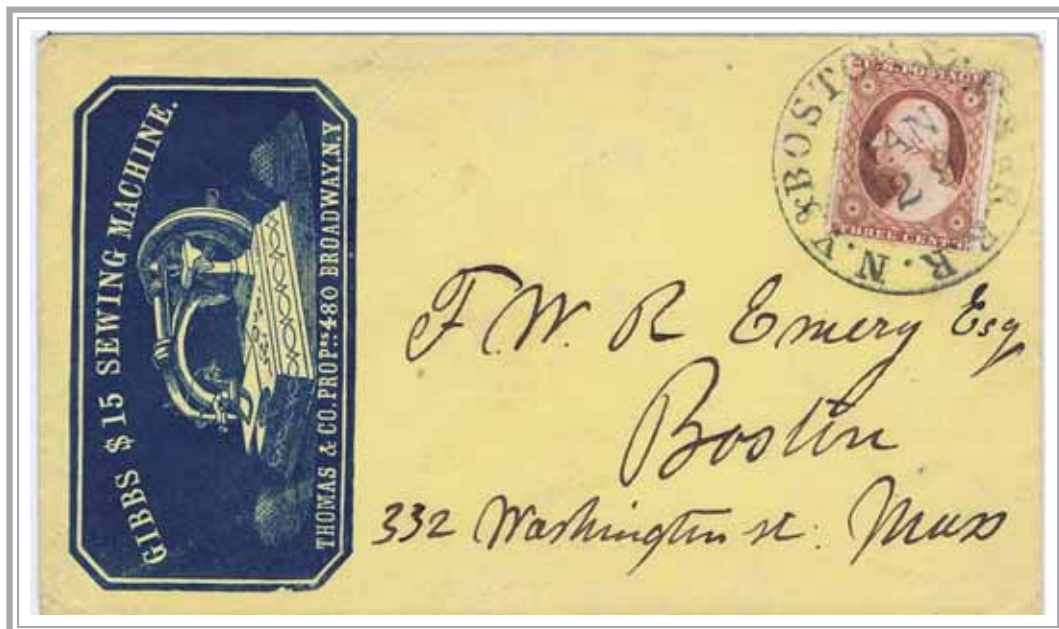 GIBBS $15 SEWING MACHINE.
THOMAS & CO. PROP:RS 480 BROADWAY, N.Y
N.Y & BOSTON R.R.
JAN
2
U.S. POSTAGE
THREE CENTS
F. W. R Emery Esq
Boston
332 Washington st. Mass